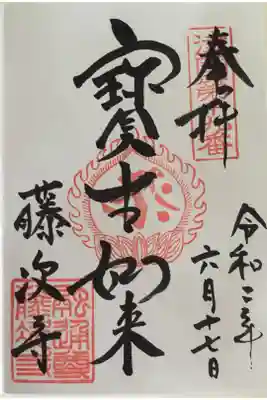 奉拝
令和二年
六月十七日
寶生如来
藤次寺